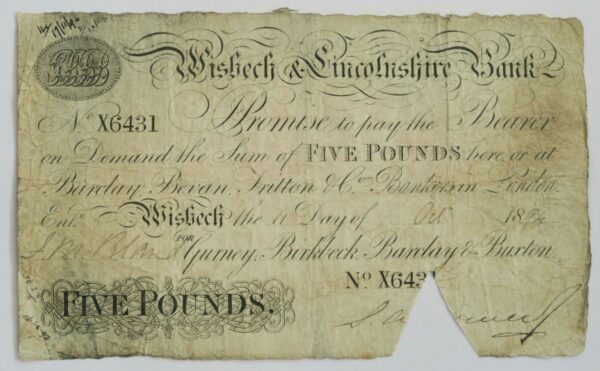 Wisbech & Lincolnshire Bank
No. X6431 I Promise to pay the Bearer
on Demand the Sum of FIVE POUNDS here or at
Barclay, Bevan, Tritton & Co. Bankers in London.
Entd. Wisbech the 11 Day of Oct 1894
FOR Gurney, Birkbeck, Barclay & Buxton
No X6431
FIVE POUNDS.